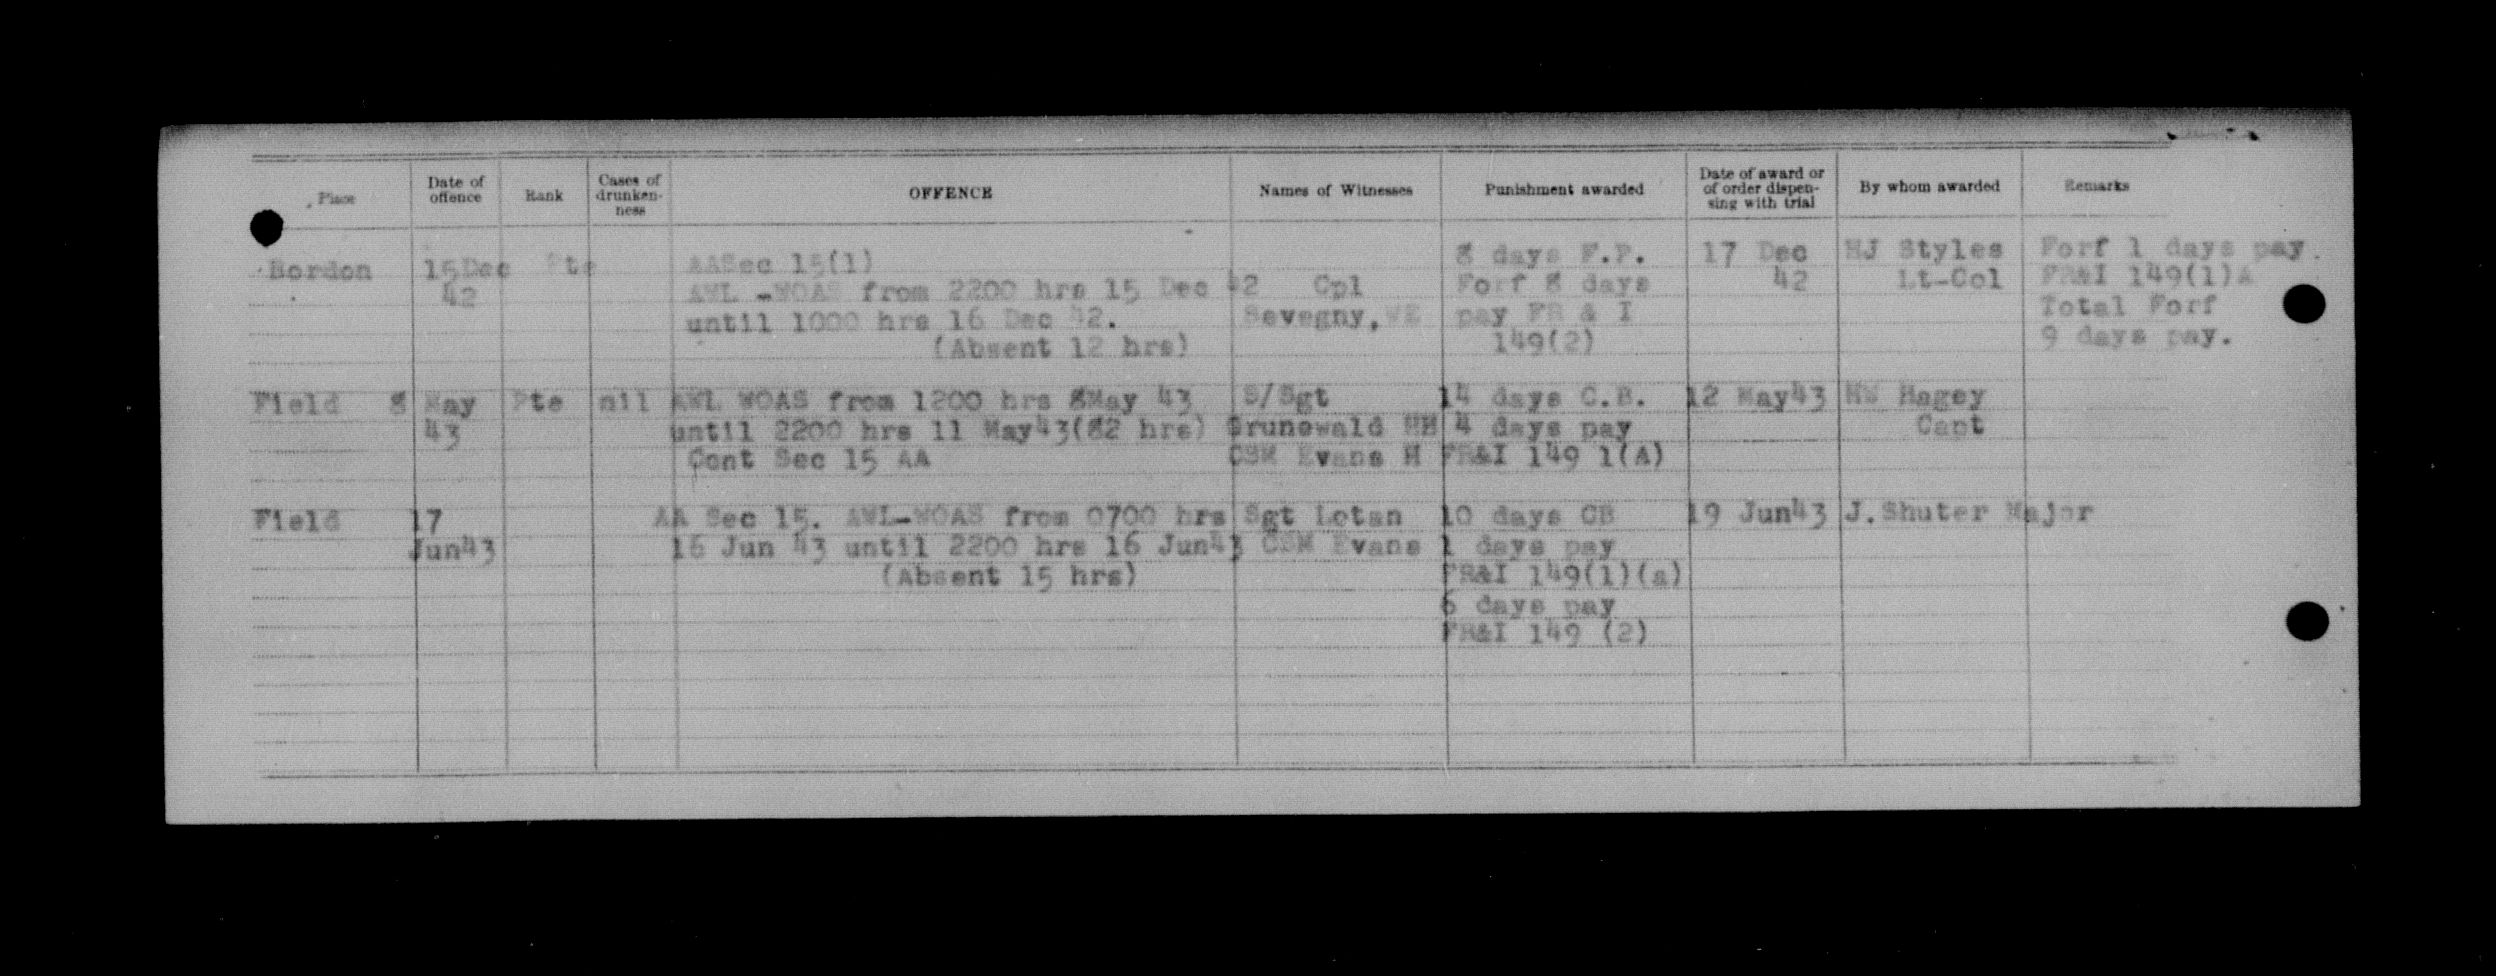 Place Date of offence Rank Cases of drunken-ness OFFENCE Names of Witnesses Punishment awarded Date of award or of order dispen-sing with trial By whom awarded Remarks
8 days F.P. 17 Dec HJ Styles Forf 1 days pay.
Bordon 15Dec Pte AASec 15(1) Forf 8 days 42 Lt-Col FR&I 149(1)A
42 AWL -WOAS from 2200 hrs 15 Dec 42 Cpl pay FR & I Total Forf
until 1000 hrs 16 Dec 42. Sevegny, 149(2) 9 days pay.
(Absent 12 hrs)
Field 8 May Pte nil AWL WOAS from 1200 hrs 8May 43 S/Sgt 14 days C.B. 12 May43 HW Hagey
43 until 2200 hrs 11 May43(82 hrs) Grunewald HH 4 days pay Capt
Cont Sec 15 AA CSM Evans H FR&I 149 1(A)
Field 17 AA Sec 15. AWL-WOAS from 0700 hrs Sgt Lotan 10 days CB 19 Jun43 J.Shuter Major
Jun43 16 Jun 43 until 2200 hrs 16 Jun43 CSM Evans 1 days pay
(Absent 15 hrs) FR&I 149(1)(a)
6 days pay
FR&I 149 (2)